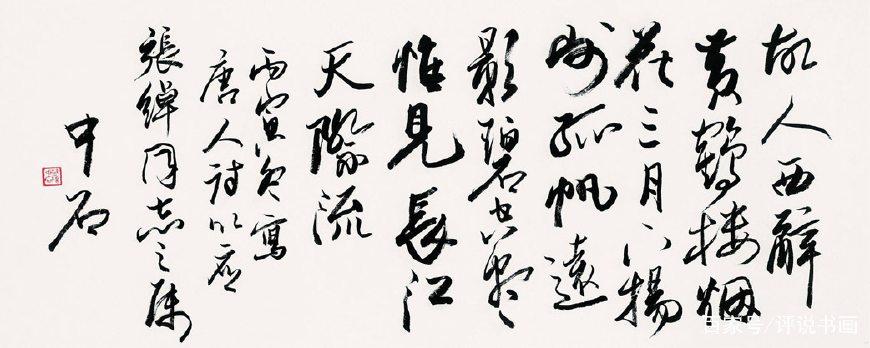 故人西辭
黄鶴楼烟
花三月下揚
州孤帆遠
影碧空盡
惟見長江
天際流
丙寅冬寫
唐人詩以應
張綽同志之属
中石
百家号/评说书画